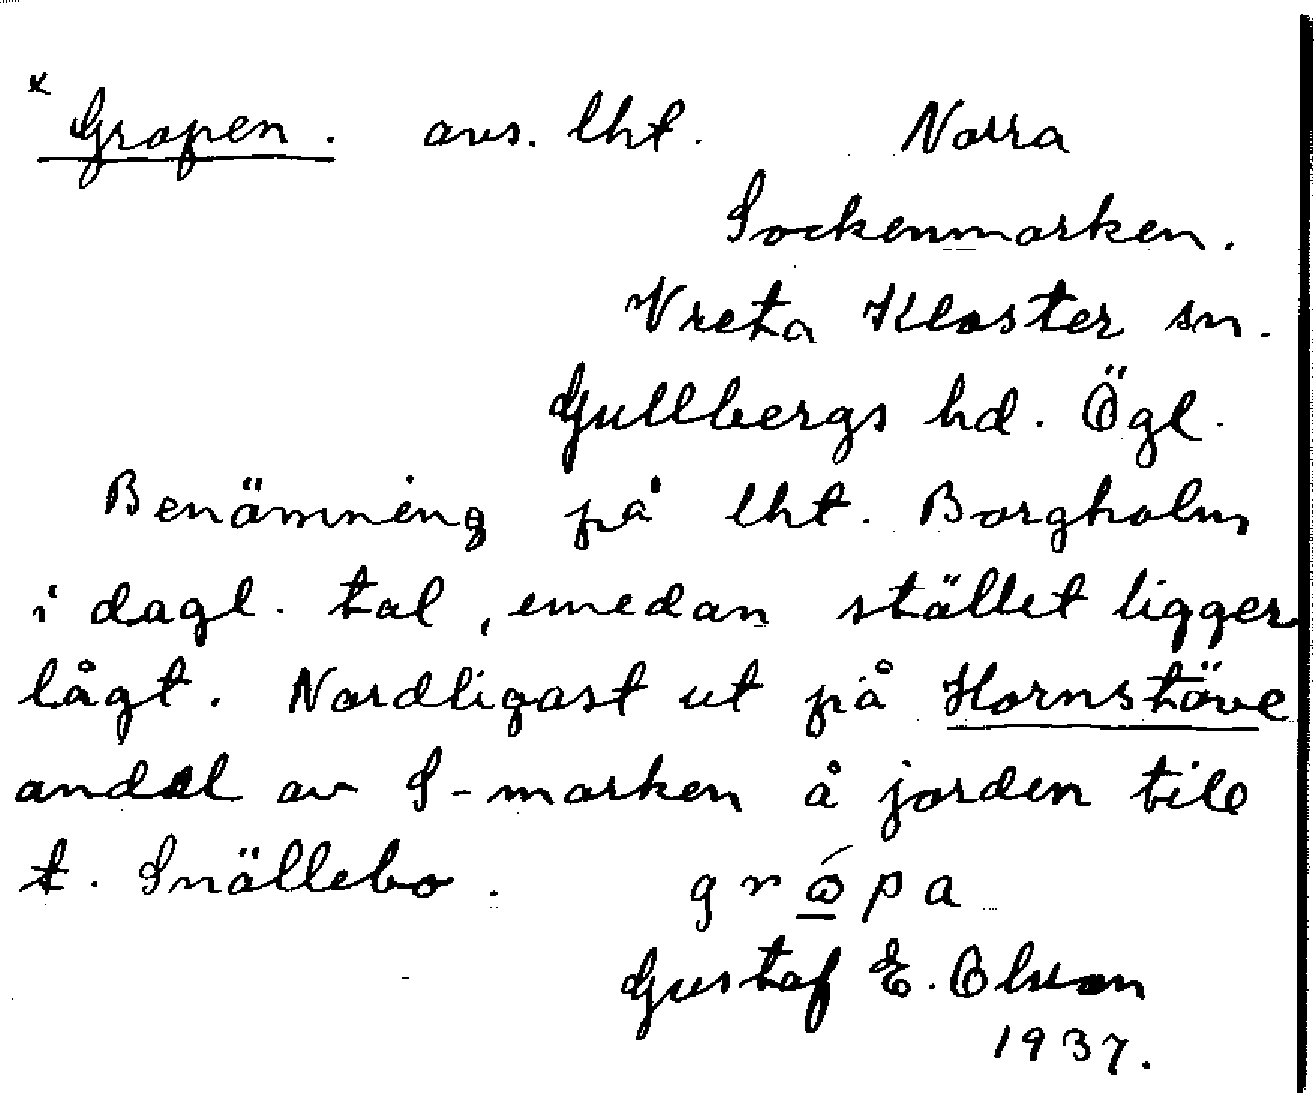 x Gropen. avs. lht. Norra
Sockenmarken.
Vreta Kloster sn.
Gullbergs hd. Ögl.
Benämning på lht. Borgholm
i dagl. tal, emedan stället ligger
lågt. Nordligast ut på Hornstöve
andel av S-marken å jorden till
t. Snällebo. 
Gustaf E. Olsson
1937.